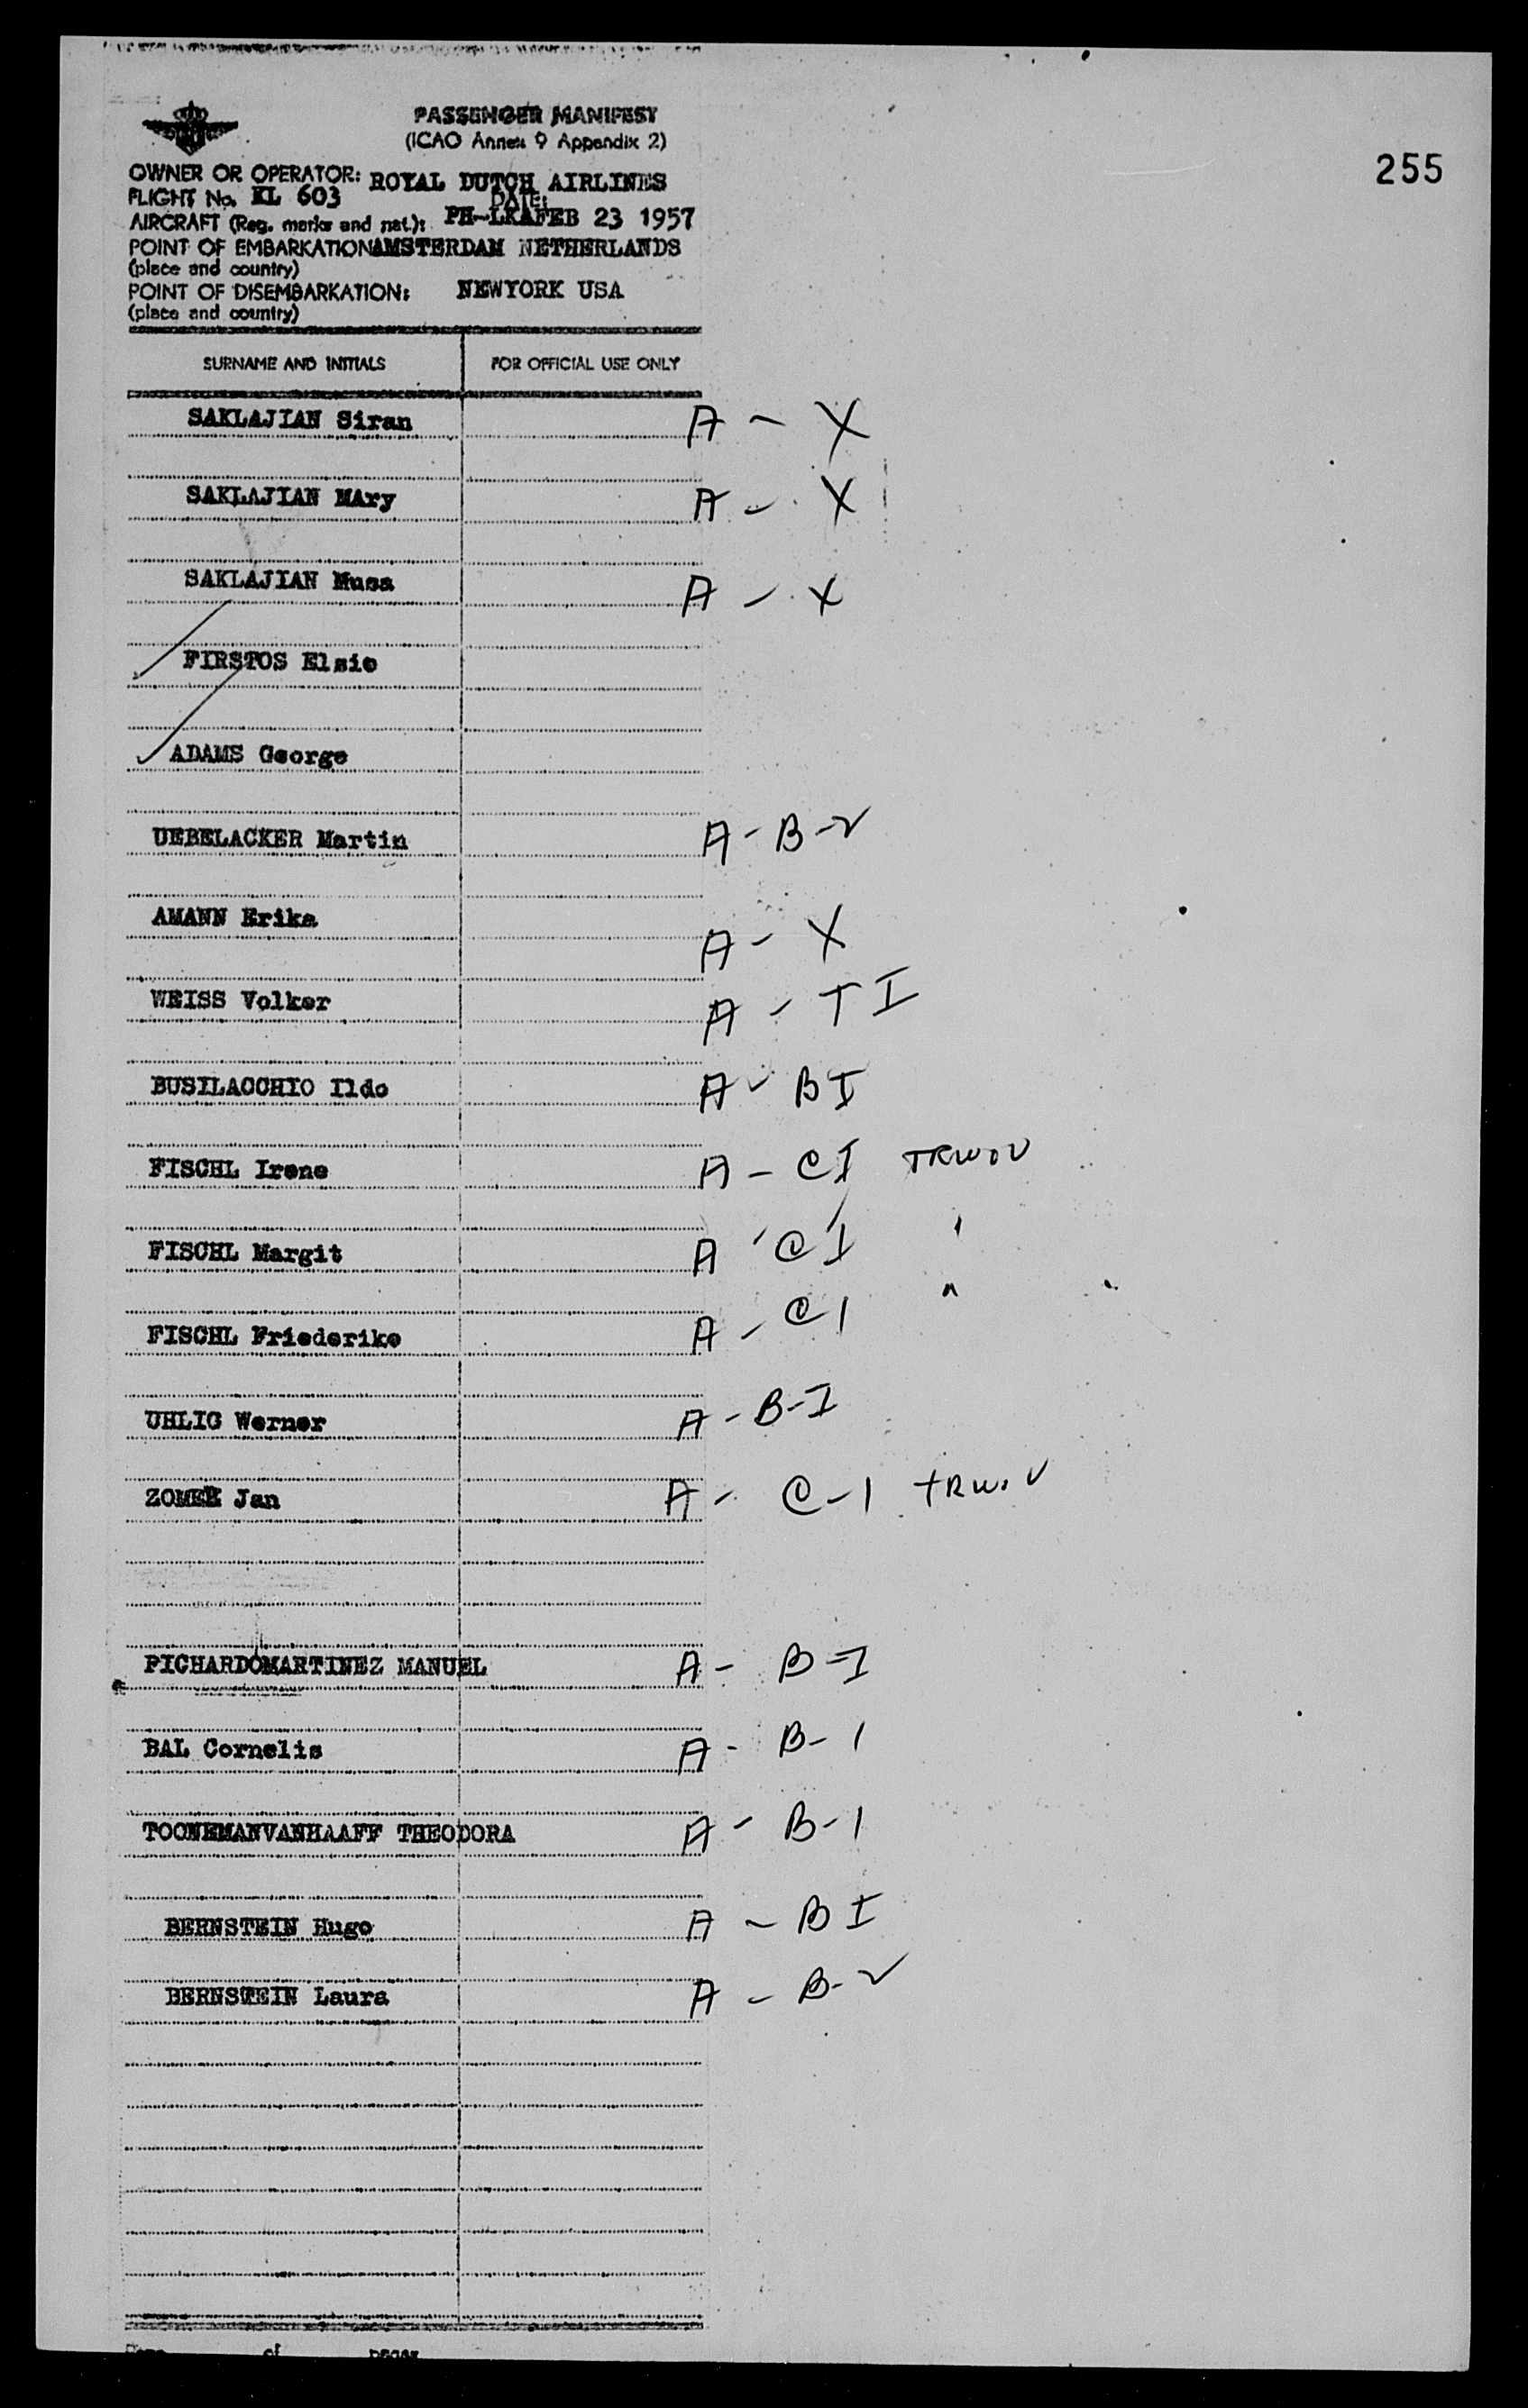 PASSENGER MANIFEST
(ICAO Annex 9 Appendix 2)
255
OWNER OR OPERATOR: ROYAL DUTCH AIRLINES
FLIGHT No. KL 603 DATE:
AIRCRAFT (Reg. marks and nat.): PH-LKA FEB 23 1957
POINT OF EMBARKATION AMSTERDAM NETHERLANDS
(place and country)
POINT OF DISEMBARKATION: NEWYORK USA
(place and country)
SURNAME AND INITIALS FOR OFFICIAL USE ONLY
SAKLAJIAN Siran A - X
SAKLAJIAN MAry A - X
SAKLAJIAN Musa A - X
FIRSTOS Elsie
ADAMS George
UEBELACKER Martin A - B - 2
AMANN Erika A - X
WEISS Volker A - T I
BUSILACCHIO Ildo A - B I
FISCHL Irene A - C I TRWOV
FISCHL Margit A - C I "
FISCHL Friederike A - C 1 "
UHLIG Werner A - B - I
ZOMER Jan A - C - 1 TRW.V
PICHARDOMARTINEZ MANUEL A - B - I
BAL Cornelis A - B - 1
TOONEMANVANHAAFF THEODORA A - B - 1
BERNSTEIN Hugo A - B I
BERNSTEIN Laura A - B - 2
of pages